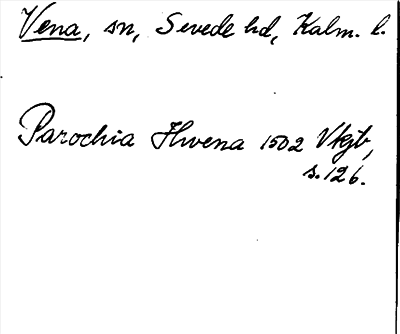 Vena, sn, Sevede hd, Kalm. l.
Parochia Hwena 1502 Vkjb,
s. 126.